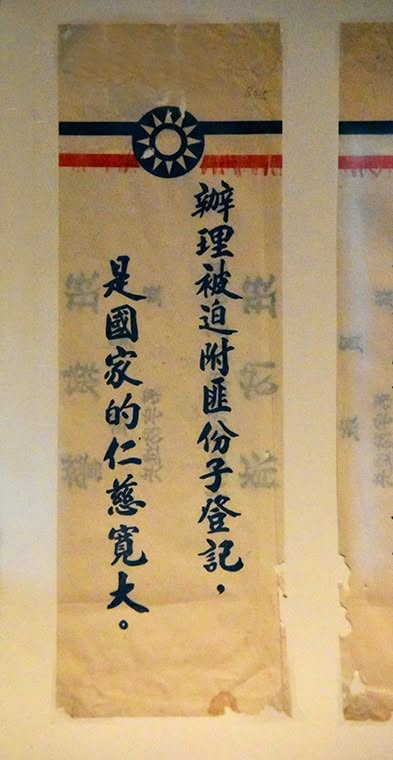 辦理被迫附匪份子登記，
是國家的仁慈寬大。